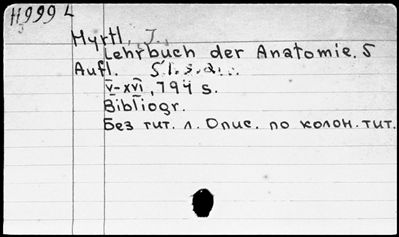 H999 L
Hyrtl, J.,
Lehrbuch der Anatomie. 5
Aufl. S.l.s.a.
V-XVI, 794 s.
Bibliogr.
Без тит. л. Опис. по колон. тит.